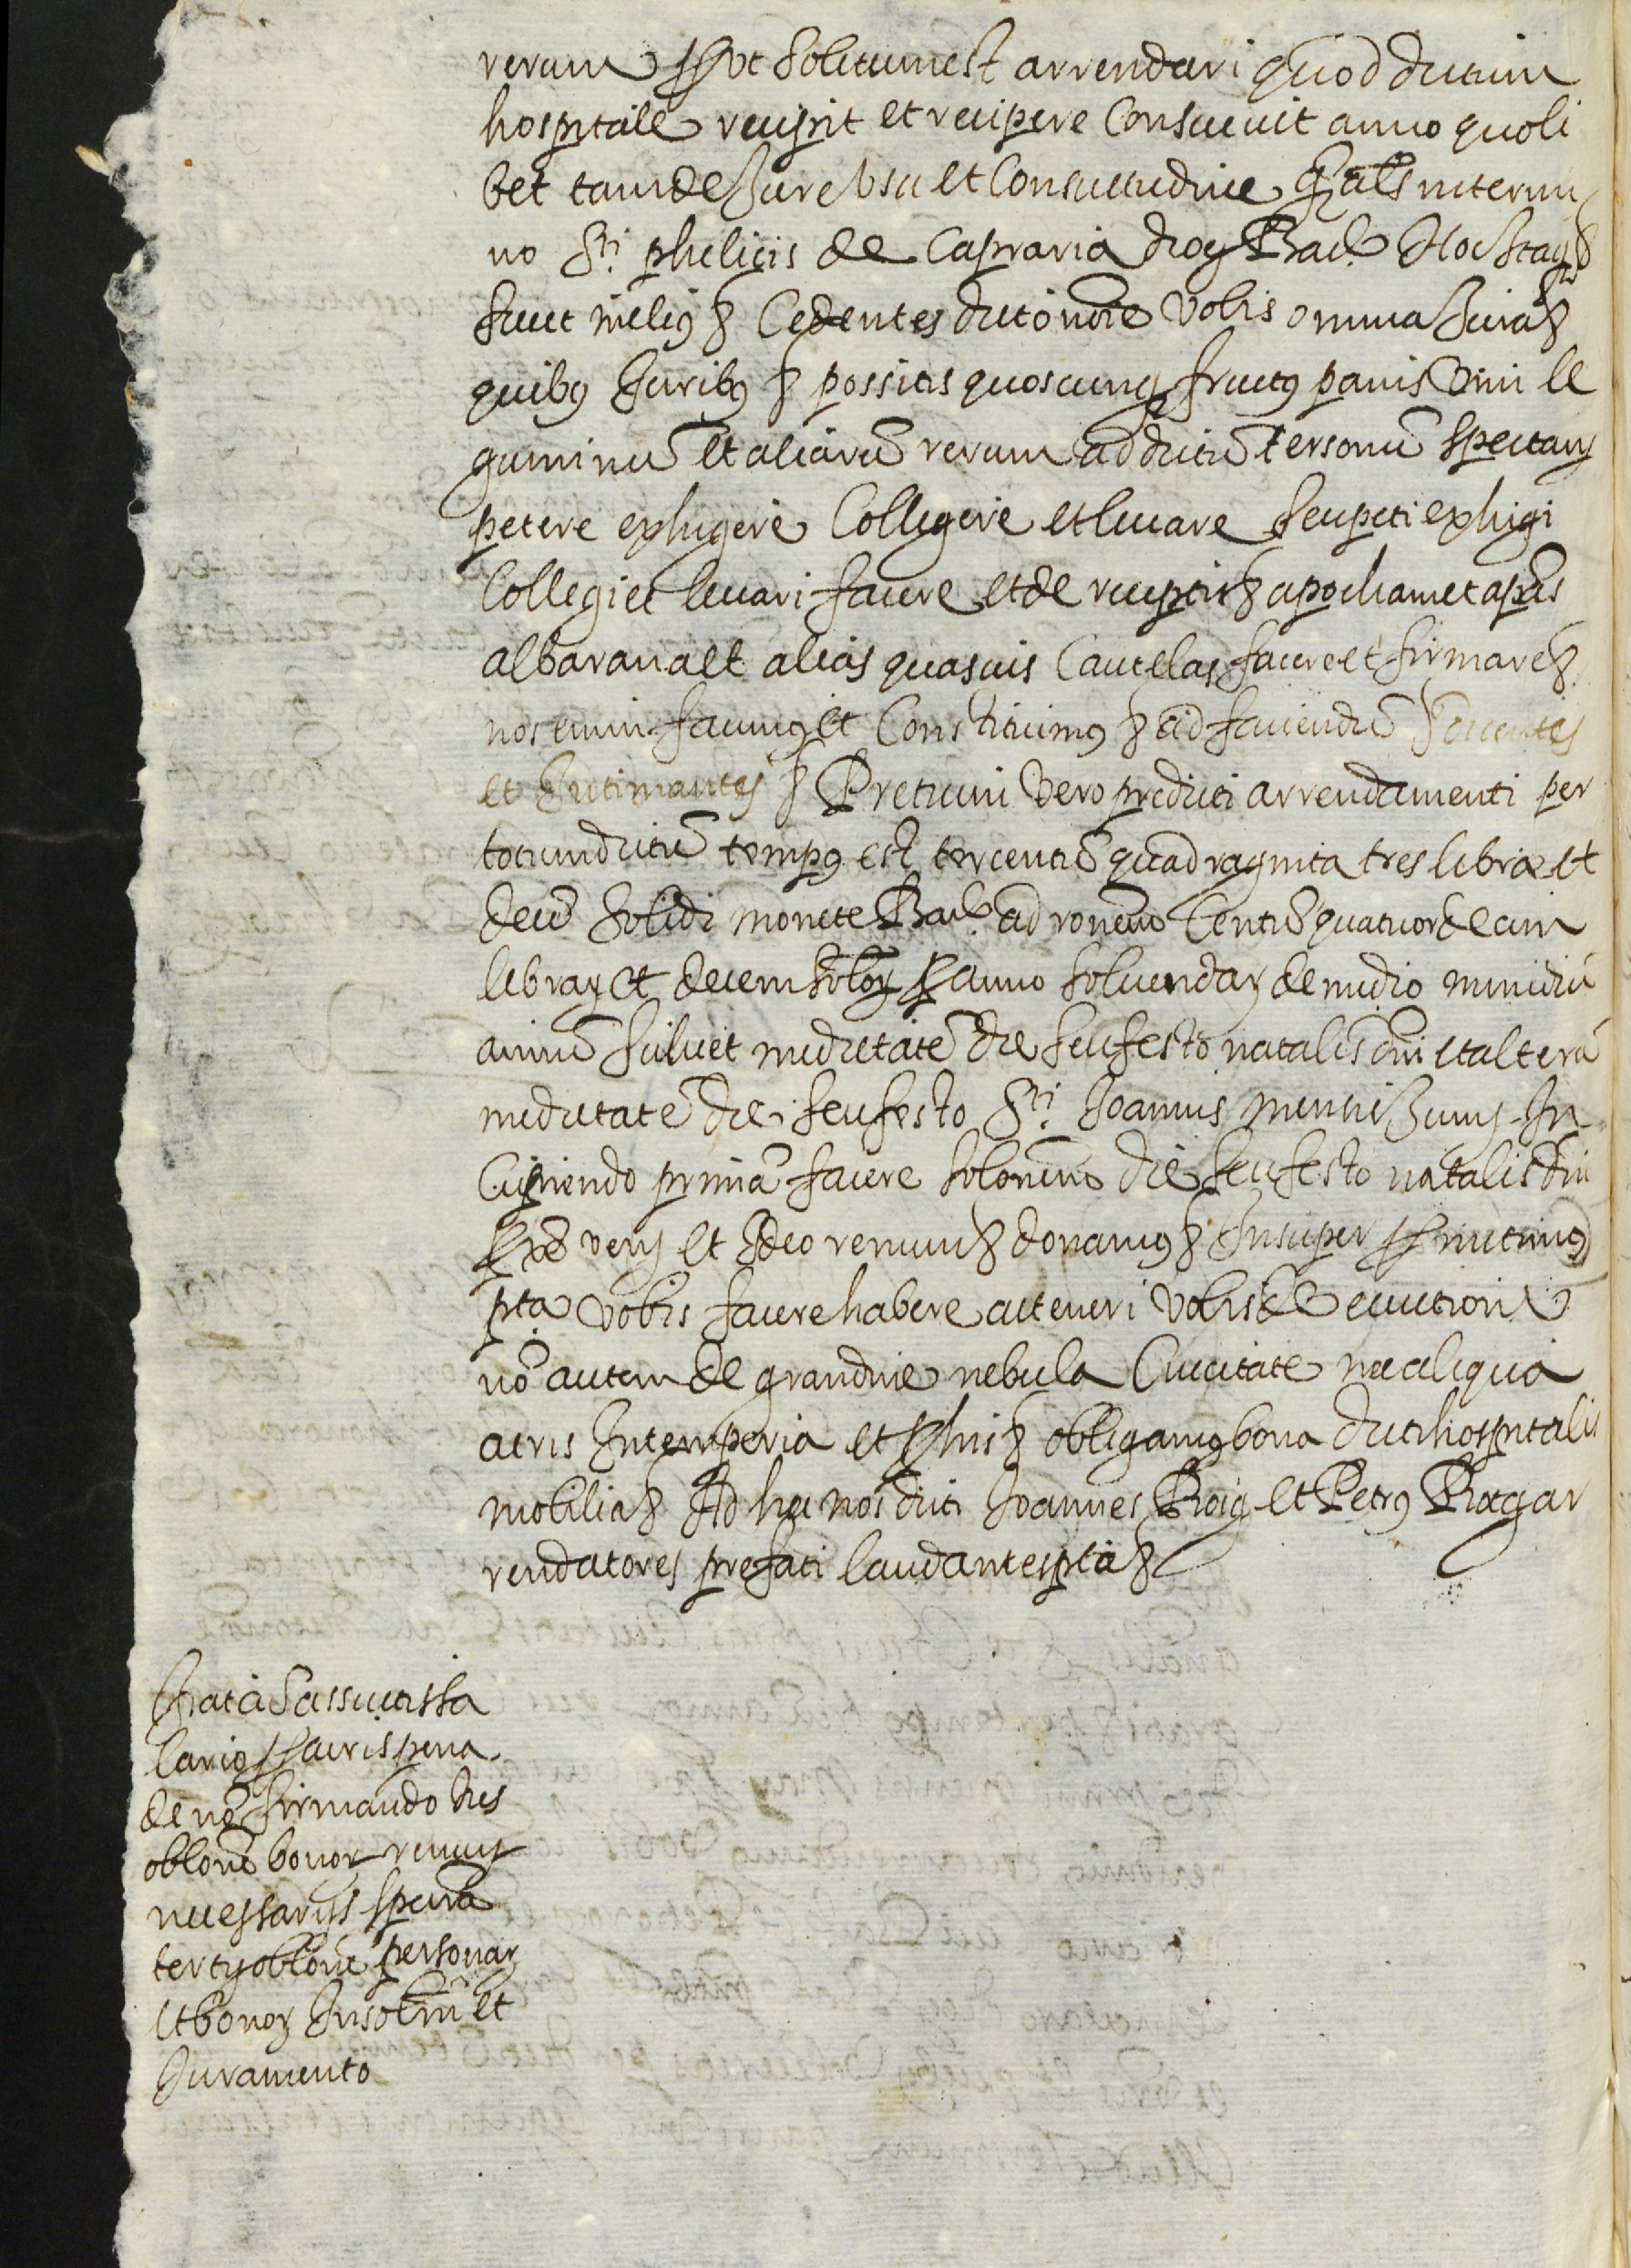 rerum ut solitum est arrendari quod dictum
hospitale recipit et recipere Consuevit anno quoli
bet tam de Jure Usu et Consuetudine als in termi
no Sti phelicis de Capraria dioc Barč Hoc
sicut melius Cedentes dicto noīe vobis omnia Jura
quibus Juribus possitis quoscunq fructus panis vini le
guminū et aliarū rerum ad dictū tersonū spectanꝭ
petere exhigere Colligere et levare seu peti exhigi
Collegi et levari facere et de receptis apocham et apas
albarana et alias quasuis Cautelas facere et firmare
nos enim facimus et Constituimus ad faciendū dicentes
et Intimantes Pretium vero predicti arrendamenti per
totum dictū tempus est tercentū quadraginta tres libræ et
decē solidi monete Barč ad ronem Centū quatuordecim
librarꝝ et decem anno solvendarꝝ de medio in mediū
annū silicet medietatē die seu festo natalis dn̄i et alterā
medietatē die seu festo Sti Joannis mensis Junij In
Cipiendo primā facere solonem die seu festo natalis dn̄i
et Ideo renunc donamus Insuper
pta vobis facere habere ac teneri vobis de evictione
nō autem de grandine nebula Ciccitate nec aliqua
aeris Intemperia et obligamus bona dicti hospitalis
mobilia Ad hec nos dicti Joannes Roig et Petrus Roig ar
rendatores prefati laudantes pta
Fiat a sa
lario pena
de nō firmando Jus
oblone bonor renunꝭ
necessarijs
tertij oblone personarꝝ
et bonorꝝ Insolm̄ et
Juramento